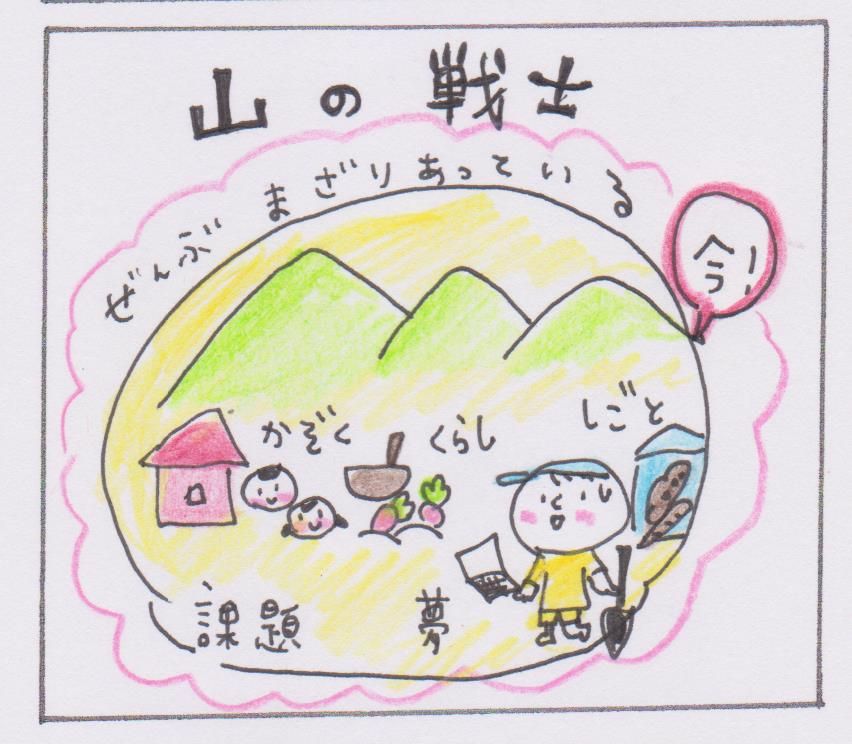 山の戦士
ぜんぶまざりあっている
今!
かぞく
くらし
しごと
課題
夢